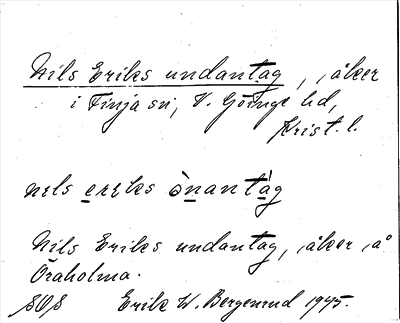 Nils Eriks undantag, , åker
i Finja sn, V. Göinge hd,
Krist. l.
nɪls erɪks ònantág
Nils Eriks undantag, , åker, å
Öraholma.
SOS Erik W. Bergenrud 1945.